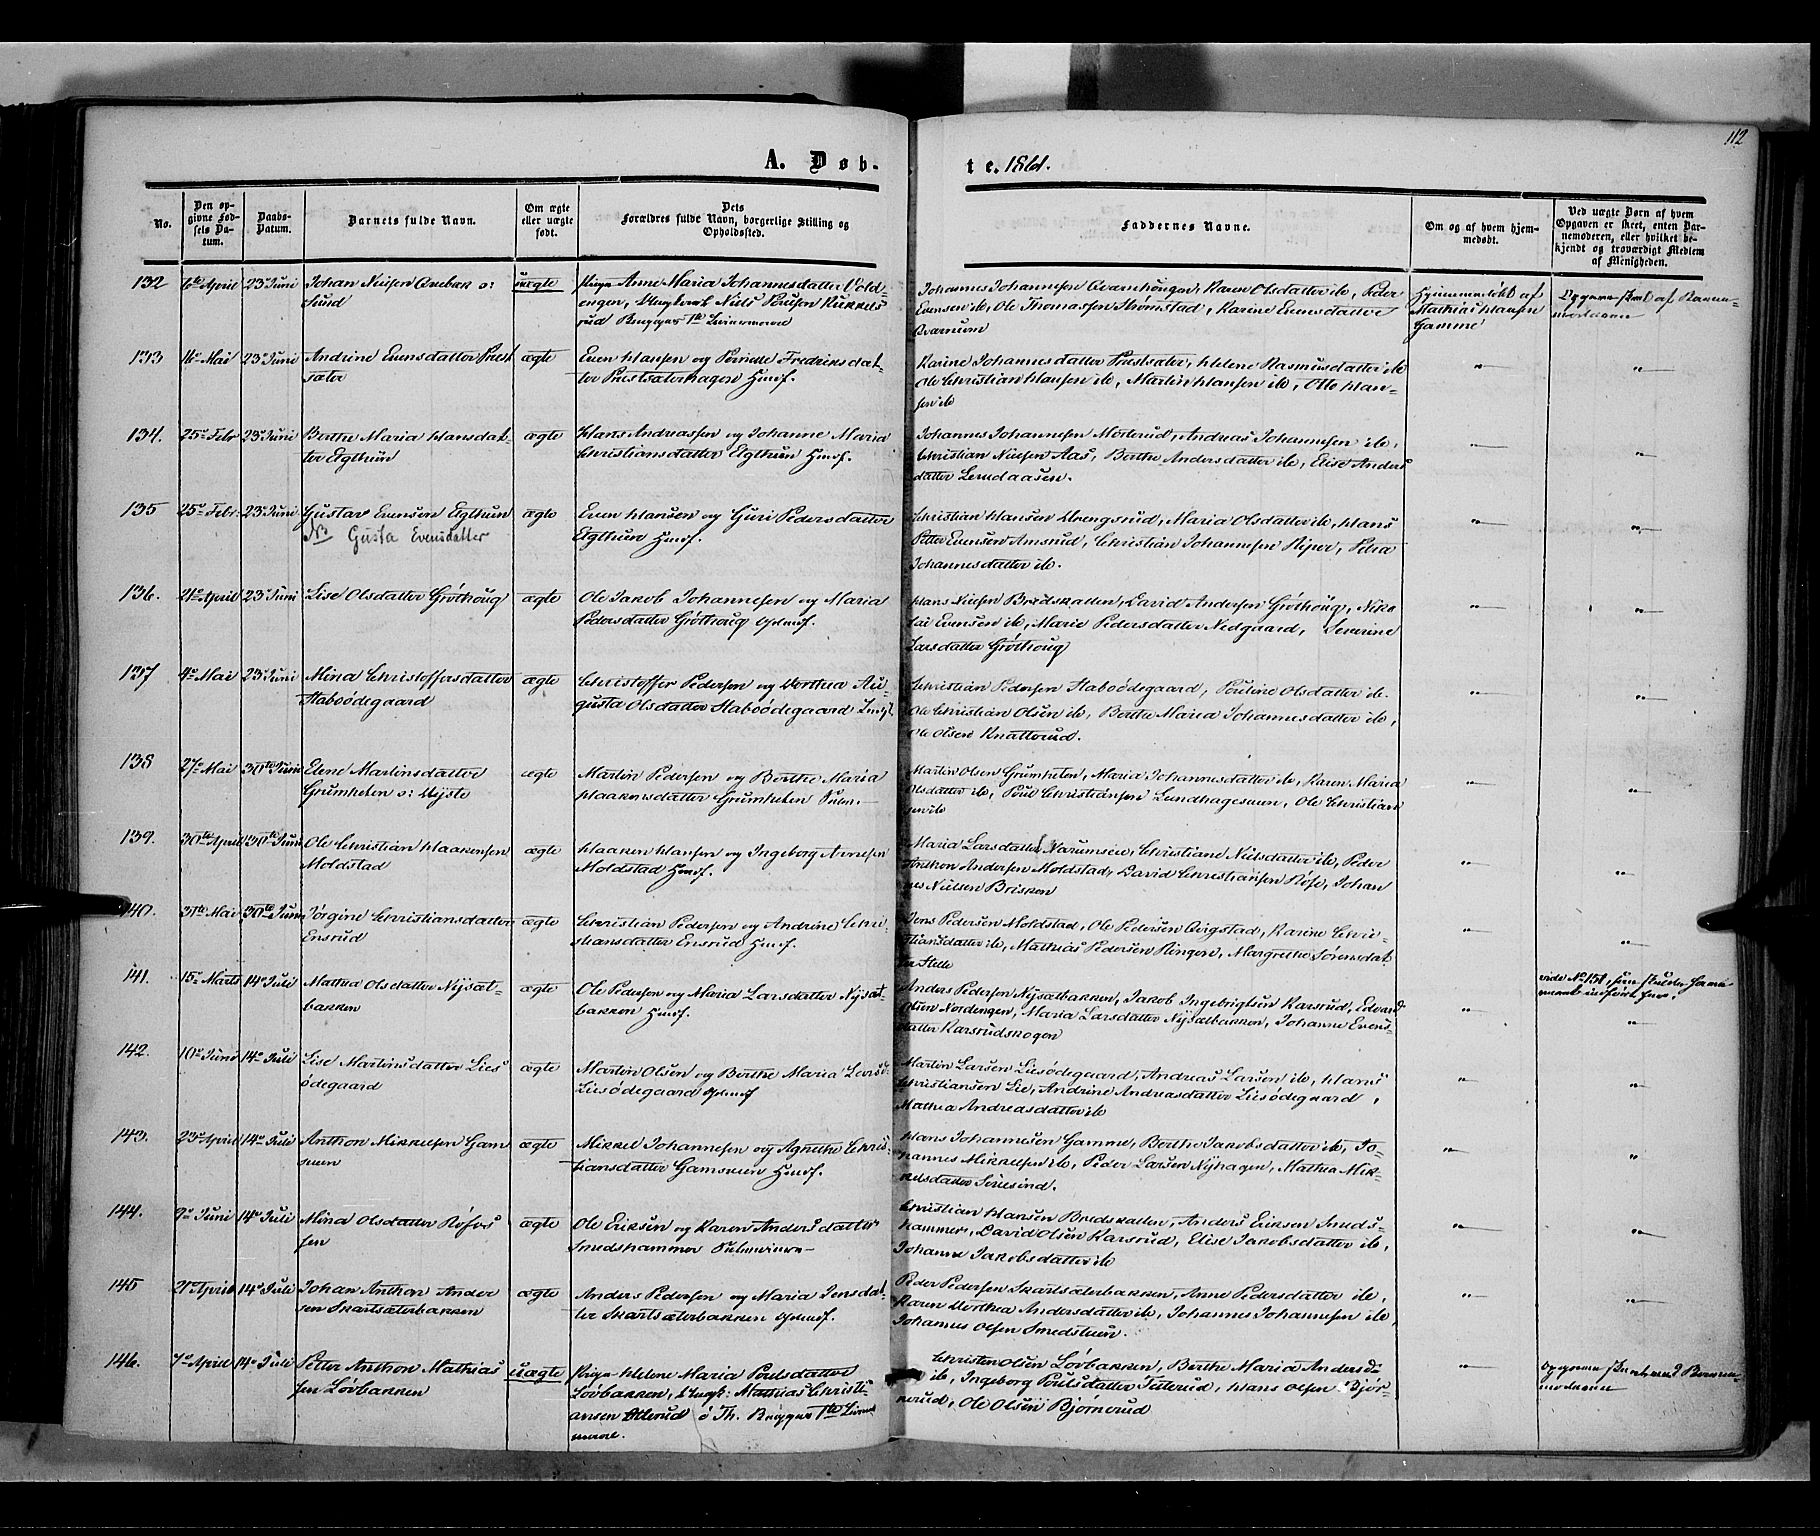 112
A. Døb-
te. 1861.
No.
Den op-
givne Fød-
sels Da-
tum.
Daabs-
Datum.
Barnets fulde Navn.
Om ægte
eller uægte
født.
Dets
Forældres fulde Navn, borgerlige Stilling og
Opholdssted.
Faddernes Navne.
Om og af hvem hjem-
medøbt.
Ved uægte Børn af hvem
Opgaven er skeet, enten Bar-
nemoderen, eller hvilket be-
kjendt og troværdigt Medlem
af Menigheden.
132
6te April
23 Juni
Johan Nilsen
Sund
uægte
Pige Anne Maria Johannesdatter Vold-
engen, Ungkarl Niels Poulsen Kukkels
rud Begges 1te Leiermaal
Johannes Johannesen Qvarnhougen, Karen Olsdatter ib, Peder
Evensen ib, Ole Thomassen Strømstad, Karine Evensdatter
Qvarnum
Hjemmedøbt af
Mathias Hansen
Gamme
Opgaven skeet af Barne-
moderen
133
16de Mai
23de Juni
Andrine Evensdatter Prest
sæter
ægte
Even Hansen og Pernille Fredriksdat-
ter Prestsæterhagen Huusf.
Karine Johannesdatter Prestsæter, Helene Rasmusdatter ib
Ole Christian Hansen ib, Martin Hansen ib, Otto Han-
sen ib
134.
25de Febr
23de Juni
Berthe Maria Hansdat-
ter Elgthun
ægte
Hans Andreassen og Johanne Maria
Christiansdatter Elgthun Huusf.
Johannes Johannesen Morterud, Andreas Johannesen ib,
Christian Nilsen Aas, Berthe Andersdatter ib, Elise Anders
datter Lundaasen.
135
25de Febr.
23de Juni
Gustav Evensen Elgthun
NB Gusta Evensdatter
ægte
Even Hansen og Guri Pedersdatter
Elgthun Huusf.
Christian Hansen Drengsrud, Maria Olsdatter ib, Hans
Petter Evensen Amsrud, Christian Johannesen Piper, Petra
Johannesdatter ib.
136.
21de April
23de Juni
Lise Olsdatter Grøthoug
ægte
Ole Jakob Johannesen og Maria
Pedersdatter Grøthoug
Hans Nilsen Bredskallen, David Andersen Grøthoug, Niko-
lai Evensen ib, Marie Pedersdatter Nedgaard, Severine
Larsdatter Grøthoug
137
4de Mai
23de Juni
Mina Christoffersdatter
Staboødegaard
ægte
Christoffer Pedersen og Dorthea Au-
gusta Olsdatter Staboødegaard
Christian Pedersen Staboødegaard, Pouline Olsdatter ib.
Ole Christian Olsen ib, Berthe Maria Johannesdatter ib,
Ole Olsen Knatterud.
138
27de Mai
30te Juni
Elene Martinsdatter
Grumheten o: Nyste
ægte
Martin Pedersen og Berthe Maria
Haakensdatter Grumheten
Martin Olsen Grumheten, Maria Johannesdatter ib, Karen Maria
Olsdatter ib, Poul Christiansen Lundhageeneen, Ole Christian
sen ib
139.
30te April
30te Juni
Ole Christian Haakensen
Moldstad
ægte
Haaken Hansen og Ingeborg Annesen
Moldstad Huusf.
Maria Larsdatter Narumseie, Christiane Nielsdatter ib, Peder
Anthon Andersen Moldstad, David Christiansen Røse, Johan
nes Nielsen Brisken
140.
31te Mai
30te Juni
Jørgine Christiansdatter
Ensrud
ægte
Christian Pedersen og Andrine Chri-
stiansdatter Ensrud Huusf.
Jens Pedersen Moldstad, Ole Pedersen Qvigstad, Karine Chri-
stiansdatter ib, Mathias Pedersen Ringen, Margrethe Sørensdat
ter Stelle
141.
15de Marts
14de Juli
Mathea Olsdatter Nysæt-
bakken
ægte
Ole Pedersen og Maria Larsdatter Nysæt-
bakken Huusf.
Anders Pedersen Nysætbakken, Jakob Ingebrigtsen Karsrud, Edvard
Olsen Nordengen, Maria Larsdatter Nysætbakken, Johanne Evens-
datter Karsrudskogen
vide No 151, som skulde
været indført her.
142.
10de Juni
14de Juli
Lise Martinsdatter Lies
ødegaard
ægte
Martin Olsen og Berthe Maria Larsd.
Liesødegaard
Martin Larsen Liesødegaard, Andreas Larsen ib, Hans
Christiansen Lie, Andrine Andreasdatter Liesødegaard,
Mathea Andreasdatter ib
143.
23de April
14de Juli
Anthon Mikkelsen Gam
meen
ægte
Mikkel Johannesen og Agnethe Chris-
tiansdatter Gamseien Huusf.
Hans Johannesen Gamme, Berthe Jakobsdatter ib, Jo-
hannes Mikkelsen ib, Peder Larsen Nyhagen, Mathea Mik-
kelsdatter
144.
9de Juni
14de Juli
Mina Olsdatter Røsvs
sen
ægte
Ole Eriksen og Karen Andersdatter
Smedshammer
Christian Hansen Bredskallen, Anders Eriksen Smeds-
hammer, David Olsen Karsrud, Elise Jakobsdatter ib,
Johanne Jakobsdatter ib
145
21de April
14de Juli
Johan Anthon Ander
sen Skartsæterbakken
ægte
Anders Pedersen og Maria Jensdat-
ter Skartsæterbakken
Peder Pedersen Skartsæterbakken, Anne Pedersdatter ib,
Karen Dorthea Andersdatter ib, Johannes Johannesen ib
Johannes Olsen Smedstuen.
146.
7de April
14de Juli
Petter Anthon Mathias
sen Løvbakken
uægte
Pige Helene Maria Poulsdatter
Løvbakken, Ungk: Mathias Christi-
ansen Olterud ø Th. Begges 1te Leier
maal.
Christen Olsen Løvbakken, Berthe Maria Andersd.
ib, Ingeborg Poulsdatter Tuterud, Hans Olsen Bjør-
nerud, Ole Olsen Bjørnerud
Opgaven skeet med Barne-
moderen